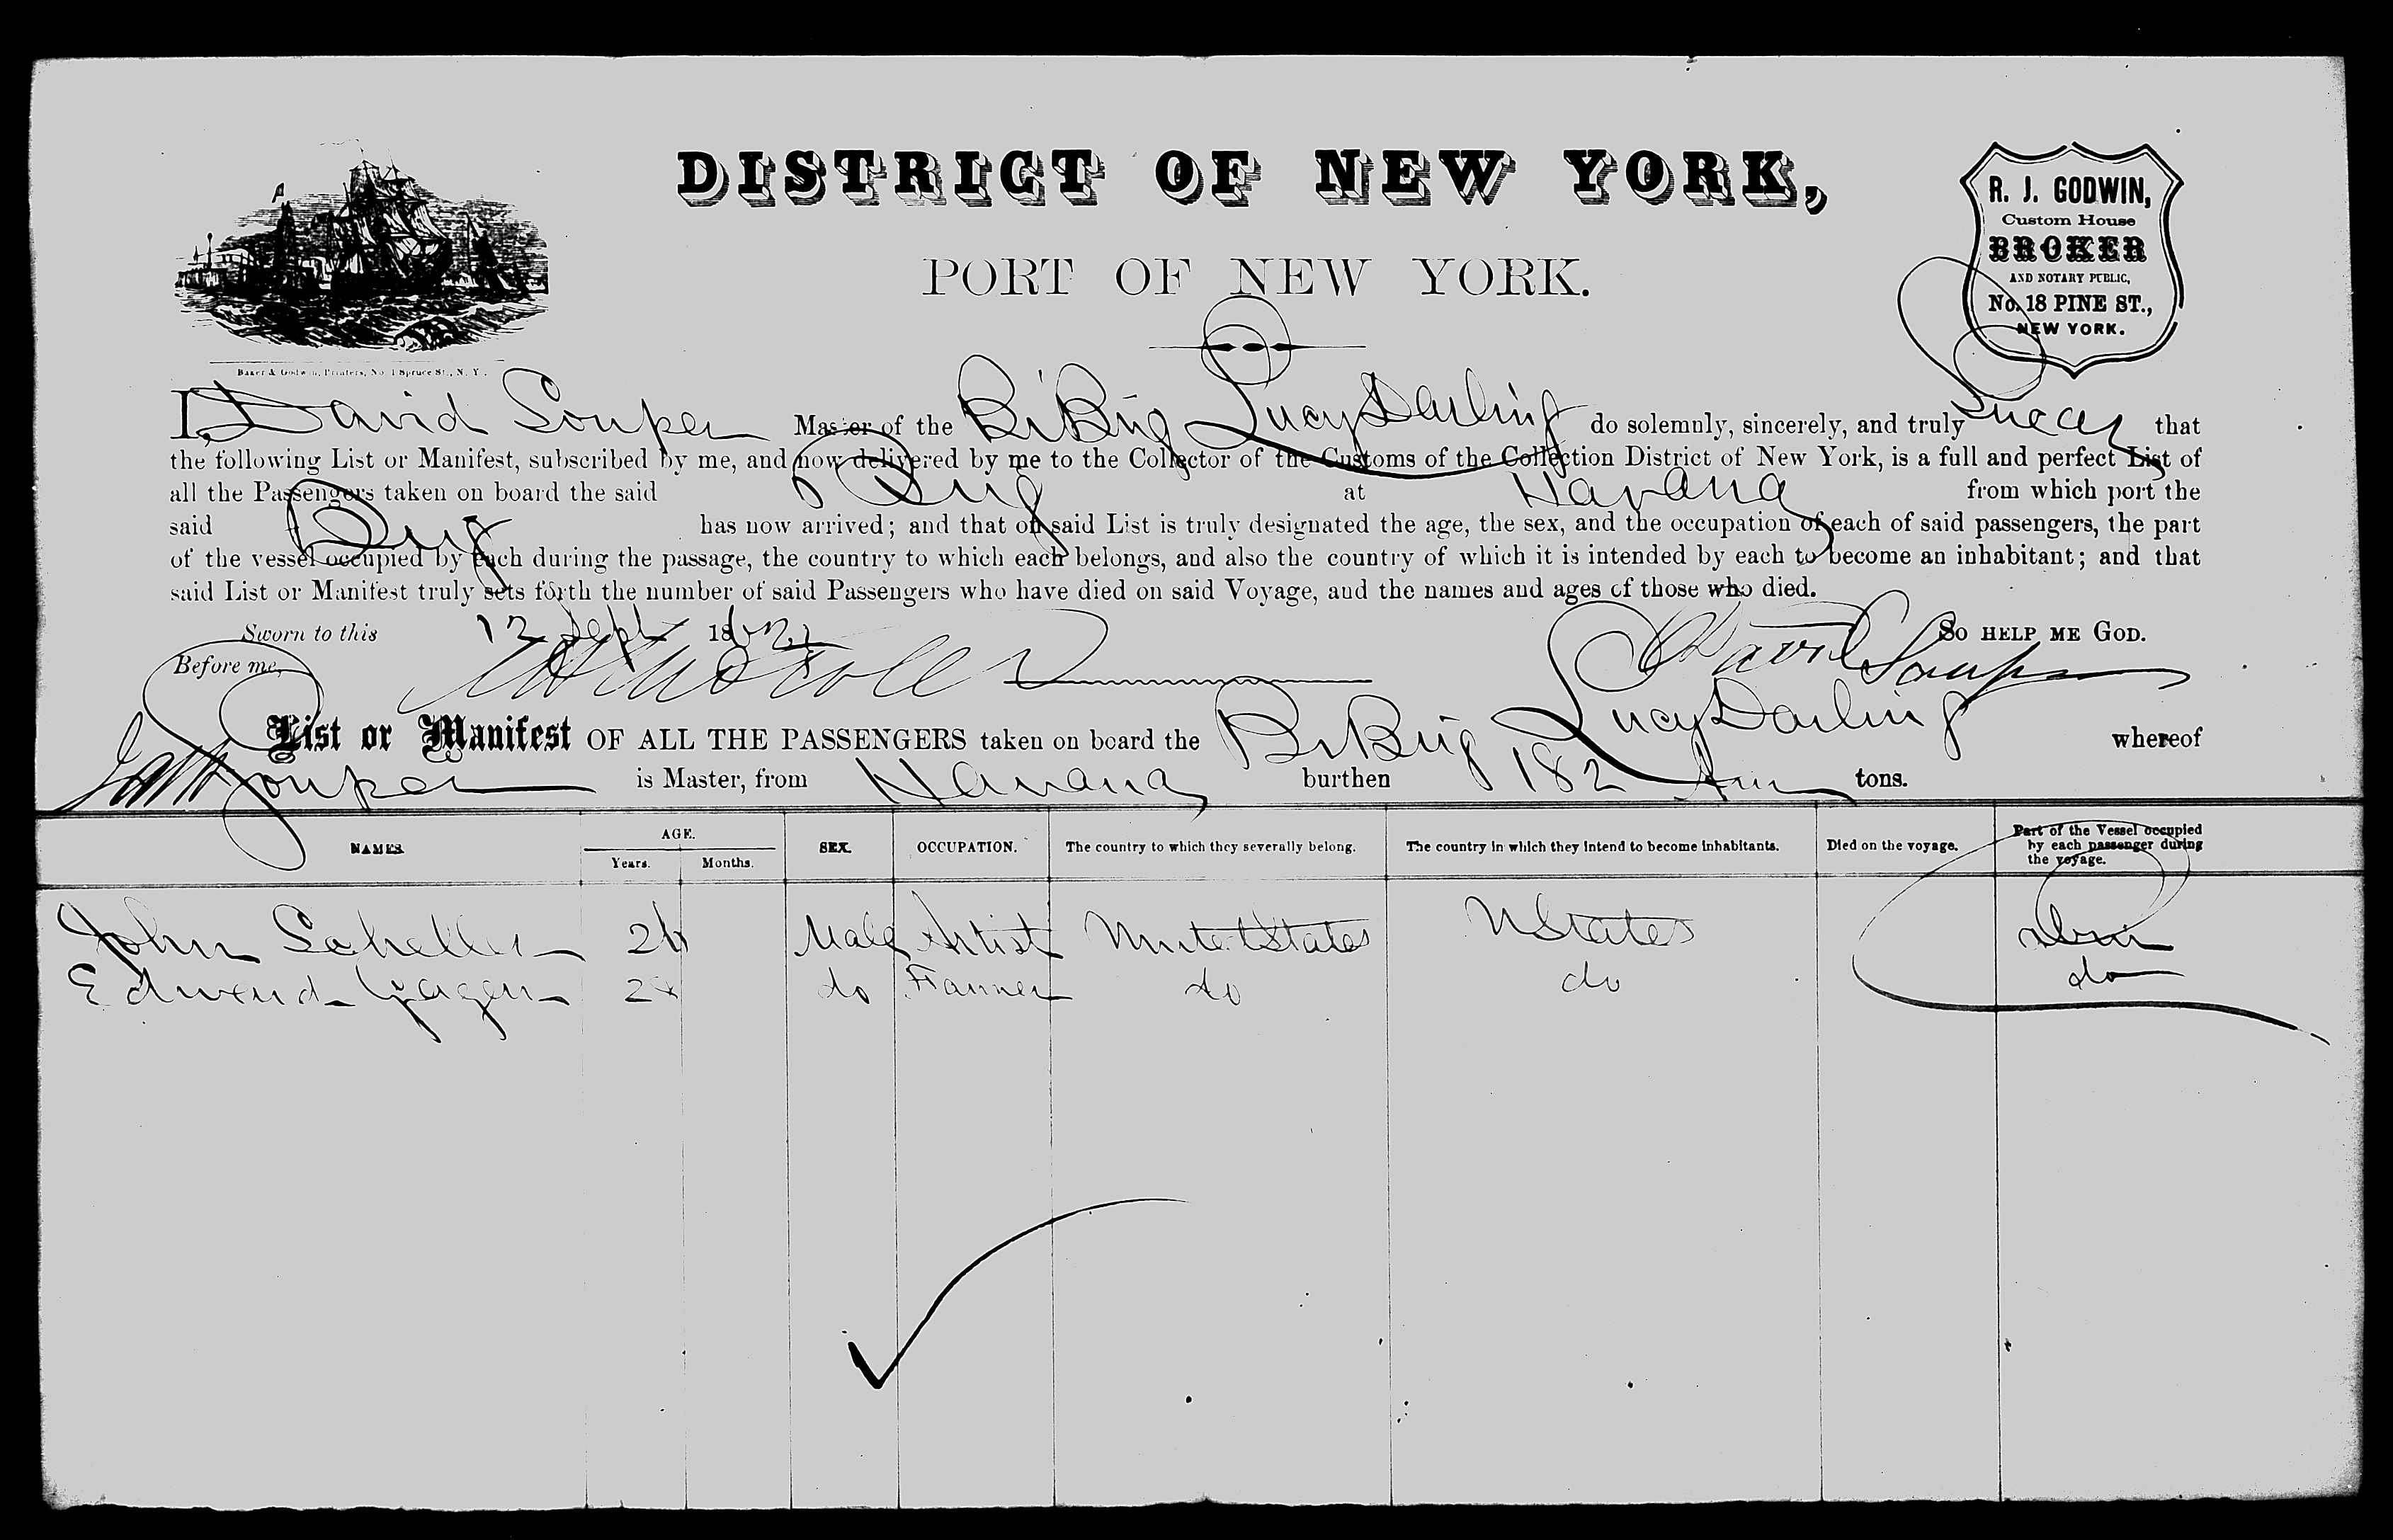 DISTRICT OF NEW YORK,
PORT OF NEW YORK.
R. J. GODWIN,
Custom House
BROKER
AND NOTARY PUBLIC,
No. 18 PINE ST.,
NEW YORK.
Baker & Godwin, Printers, No. 1 Spruce St., N. Y.
I, David Souper Master of the Br Brig Lucy Darling do solemnly, sincerely, and truly swear that
the following List or Manifest, subscribed by me, and now delivered by me to the Collector of the Customs of the Collection District of New York, is a full and perfect List of
all the Passengers taken on board the said Brig at Havana from which port the
said Brig has now arrived; and that on said List is truly designated the age, the sex, and the occupation of each of said passengers, the part
of the vessel occupied by each during the passage, the country to which each belongs, and also the country of which it is intended by each to become an inhabitant; and that
said List or Manifest truly sets forth the number of said Passengers who have died on said Voyage, and the names and ages of those who died.
Sworn to this 12 Sept 1862 SO HELP ME GOD.
Before me, David Souper
List or Manifest OF ALL THE PASSENGERS taken on board the Br Brig Lucy Darling whereof
Souper is Master, from Havana burthen 182 tons.
NAMES AGE. SEX. OCCUPATION. The country to which they severally belong. The country in which they intend to become inhabitants. Died on the voyage. Part of the Vessel occupied by each passenger during the voyage.
Years. Months.
John Scheller Male Artist United States U States
Edward do Farmer do do do